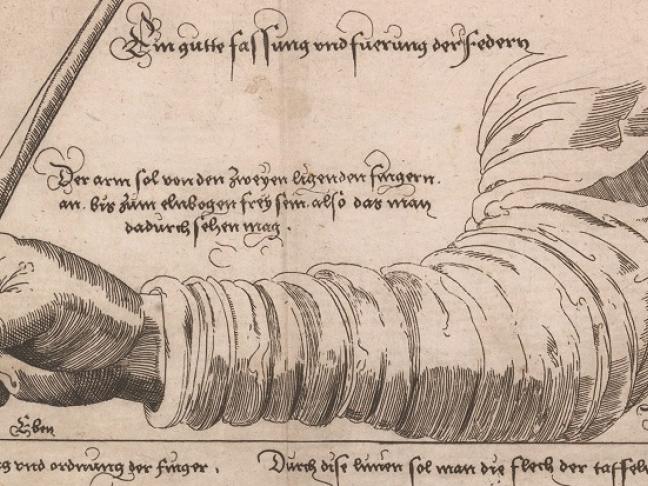 Ein gutte fassung vnd fuerung der Federn
Der arm sol von den zweyen ligenden fingern.
an. bis zum elnbogen frey sein. also das man
dadurch sehen mag.
Eben
vnd ordnung der finger.
Durch dise linien sol man die flech der taffeln